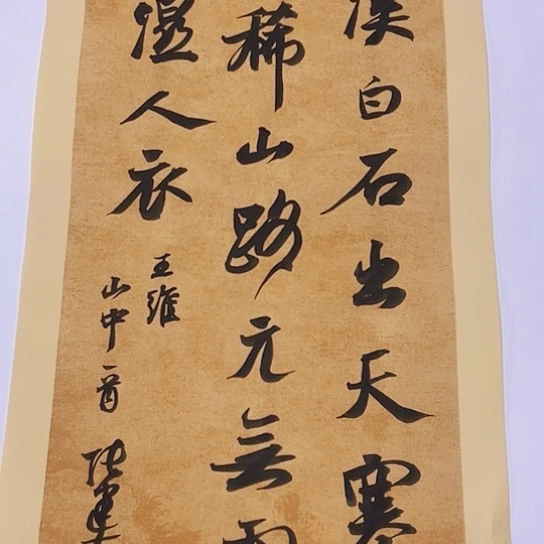 溪白石出天寒
稀山路元無雨
濕人衣
王維
山中一首